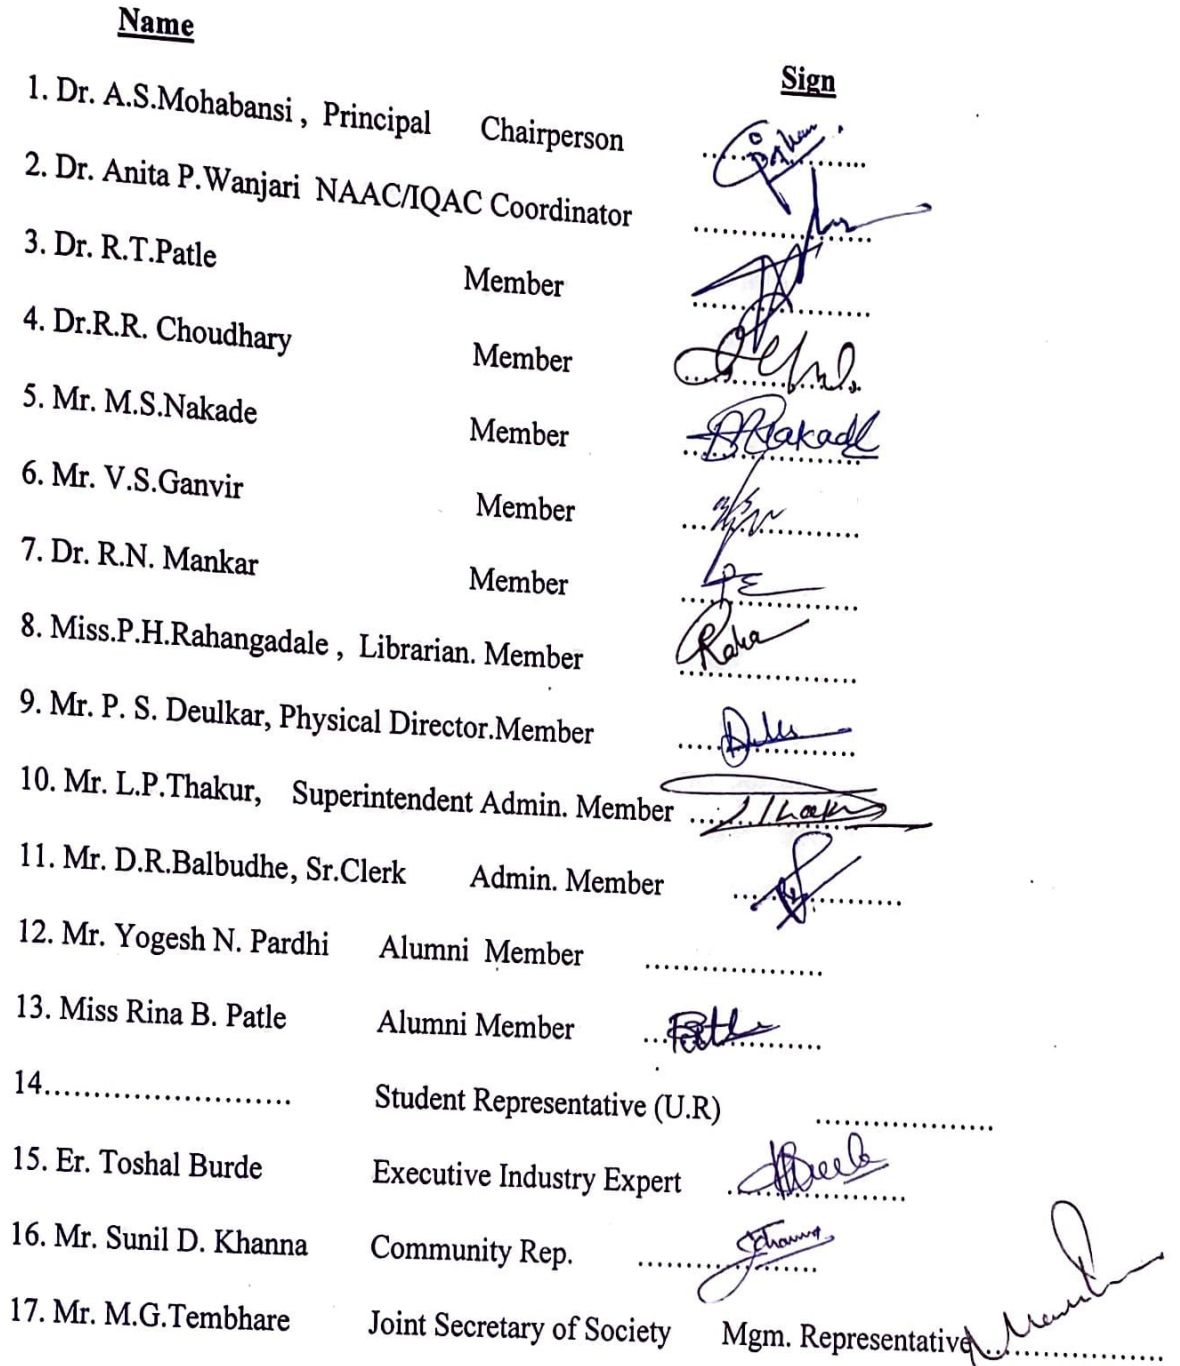 Name
Sign
1. Dr. A.S.Mohabansi , Principal Chairperson ..................
2. Dr. Anita P.Wanjari NAAC/IQAC Coordinator ..................
3. Dr. R.T.Patle Member ..................
4. Dr.R.R. Choudhary Member ..................
5. Mr. M.S.Nakade Member ..................
6. Mr. V.S.Ganvir Member ..................
7. Dr. R.N. Mankar Member ..................
8. Miss.P.H.Rahangadale , Librarian. Member Raha ..................
9. Mr. P. S. Deulkar, Physical Director.Member ..................
10. Mr. L.P.Thakur, Superintendent Admin. Member ..................
11. Mr. D.R.Balbudhe, Sr.Clerk Admin. Member ..................
12. Mr. Yogesh N. Pardhi Alumni Member ..................
13. Miss Rina B. Patle Alumni Member ..................
14......................... Student Representative (U.R) ..................
15. Er. Toshal Burde Executive Industry Expert ..................
16. Mr. Sunil D. Khanna Community Rep. ..................
17. Mr. M.G.Tembhare Joint Secretary of Society Mgm. Representative ..................